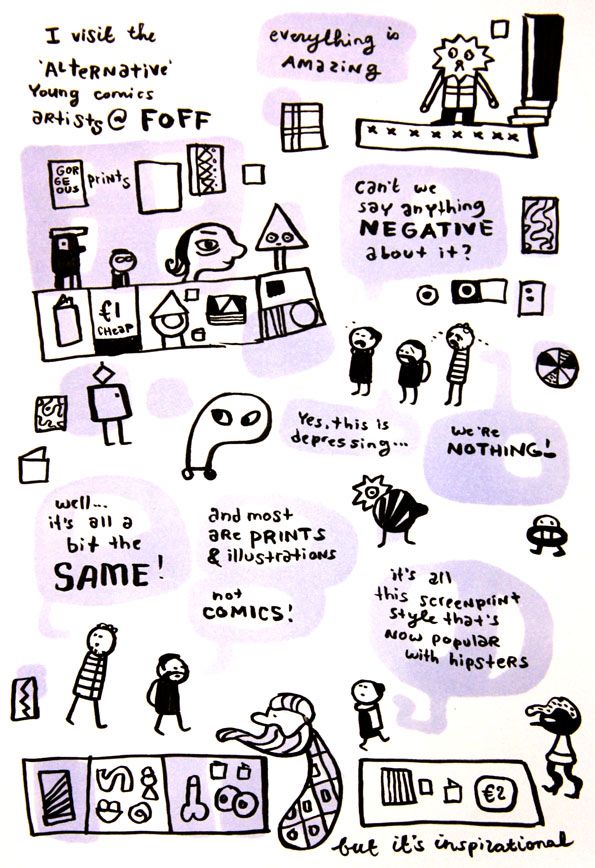 I visit the
'ALTERNATIVE'
Young comics
artists @ FOFF
everything is
AMAZING
GOR
GE
OUS
prints
can't we
say anything
NEGATIVE
about it?
€1
CHEAP
Yes, this is
depressing...
We're
NOTHING!
well...
it's all a
bit the
SAME!
and most
are PRINTS
& illustrations
not
COMICS!
it's all
this screenprint
style that's
NOW popular
with hipsters
€2
but it's inspirational